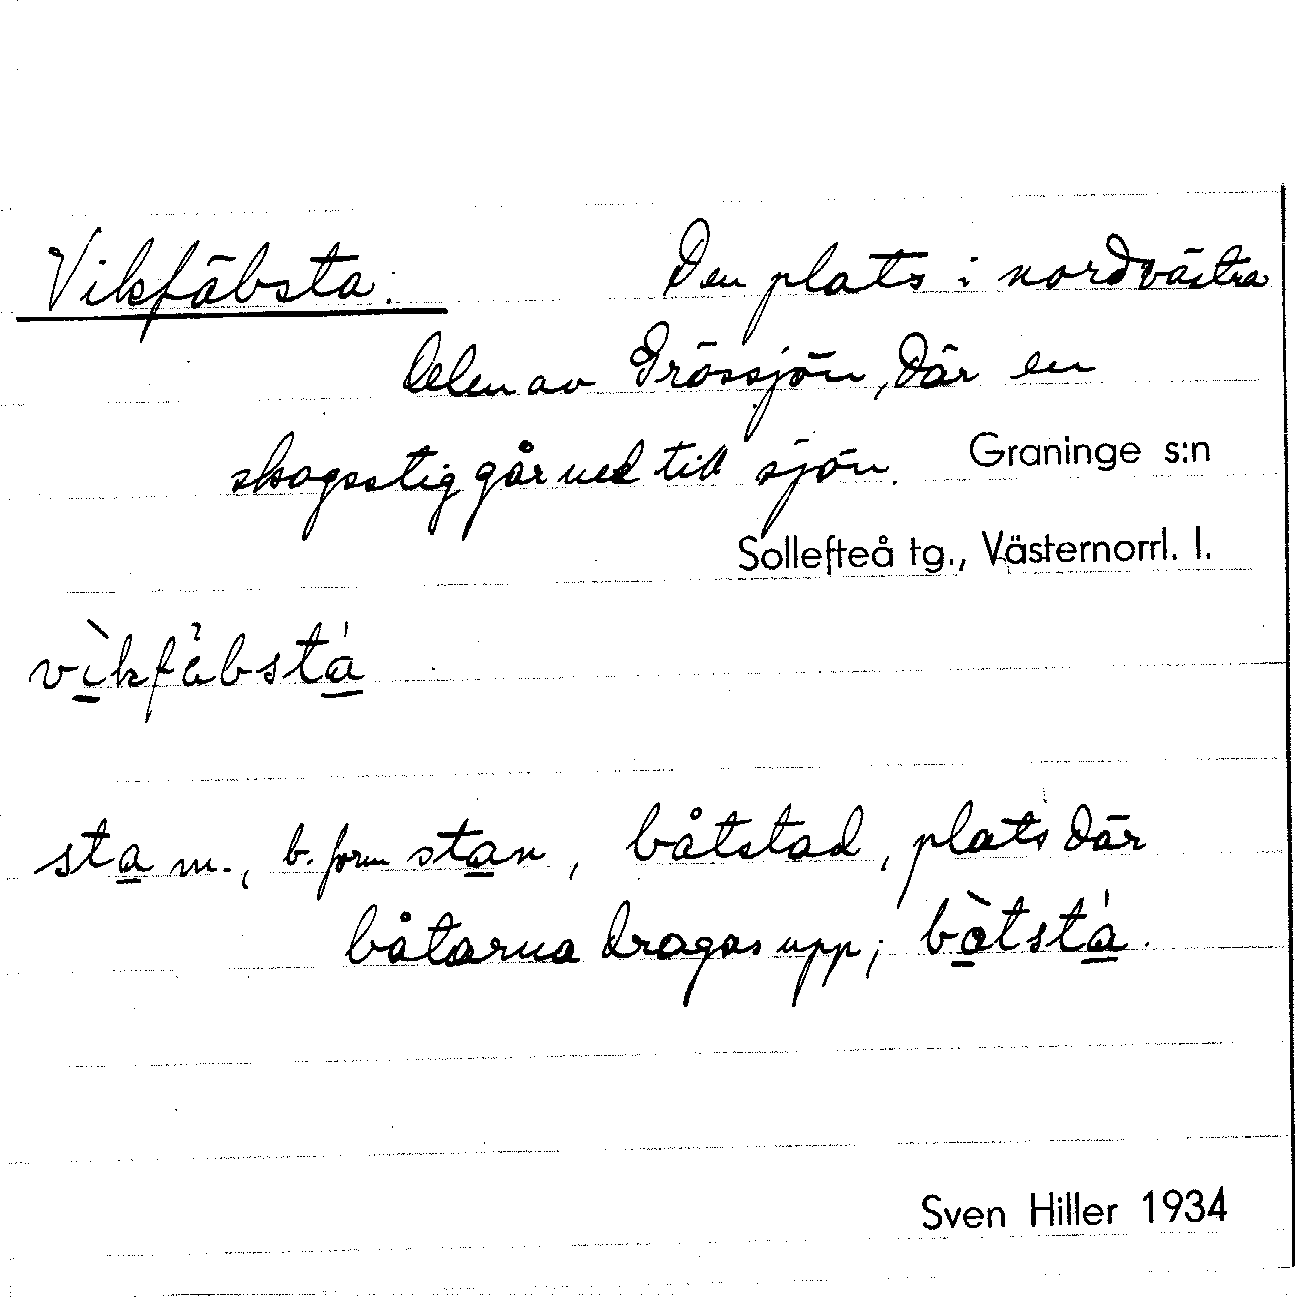 Vikfäbsta. Den plats i nordvästra
delen av Grössjön, där en
skogsstig går ned till sjön. Graninge s:n
Sollefteå tg., Västernorrl. l.
vìkfäbstá
sta m., b. form stan, båtstad, plats där
båtarna dragas upp; bòtstá.
Sven Hiller 1934